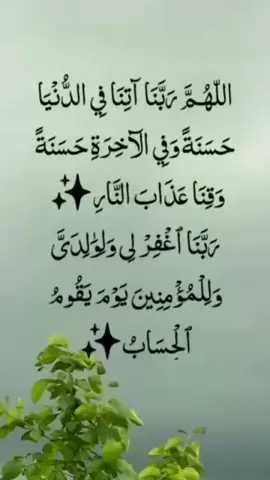 اللّٰهُمَّ رَبَّنَا آتِنَا فِي الدُّنْيَا
حَسَنَةً وَفِي الآخِرَةِ حَسَنَةً
وَقِنَا عَذَابَ النَّارِ
رَبَّنَا ٱغْفِرْ لِي وَلِوَٰلِدَيَّ
وَلِلْمُؤْمِنِينَ يَوْمَ يَقُومُ
ٱلْحِسَابُ